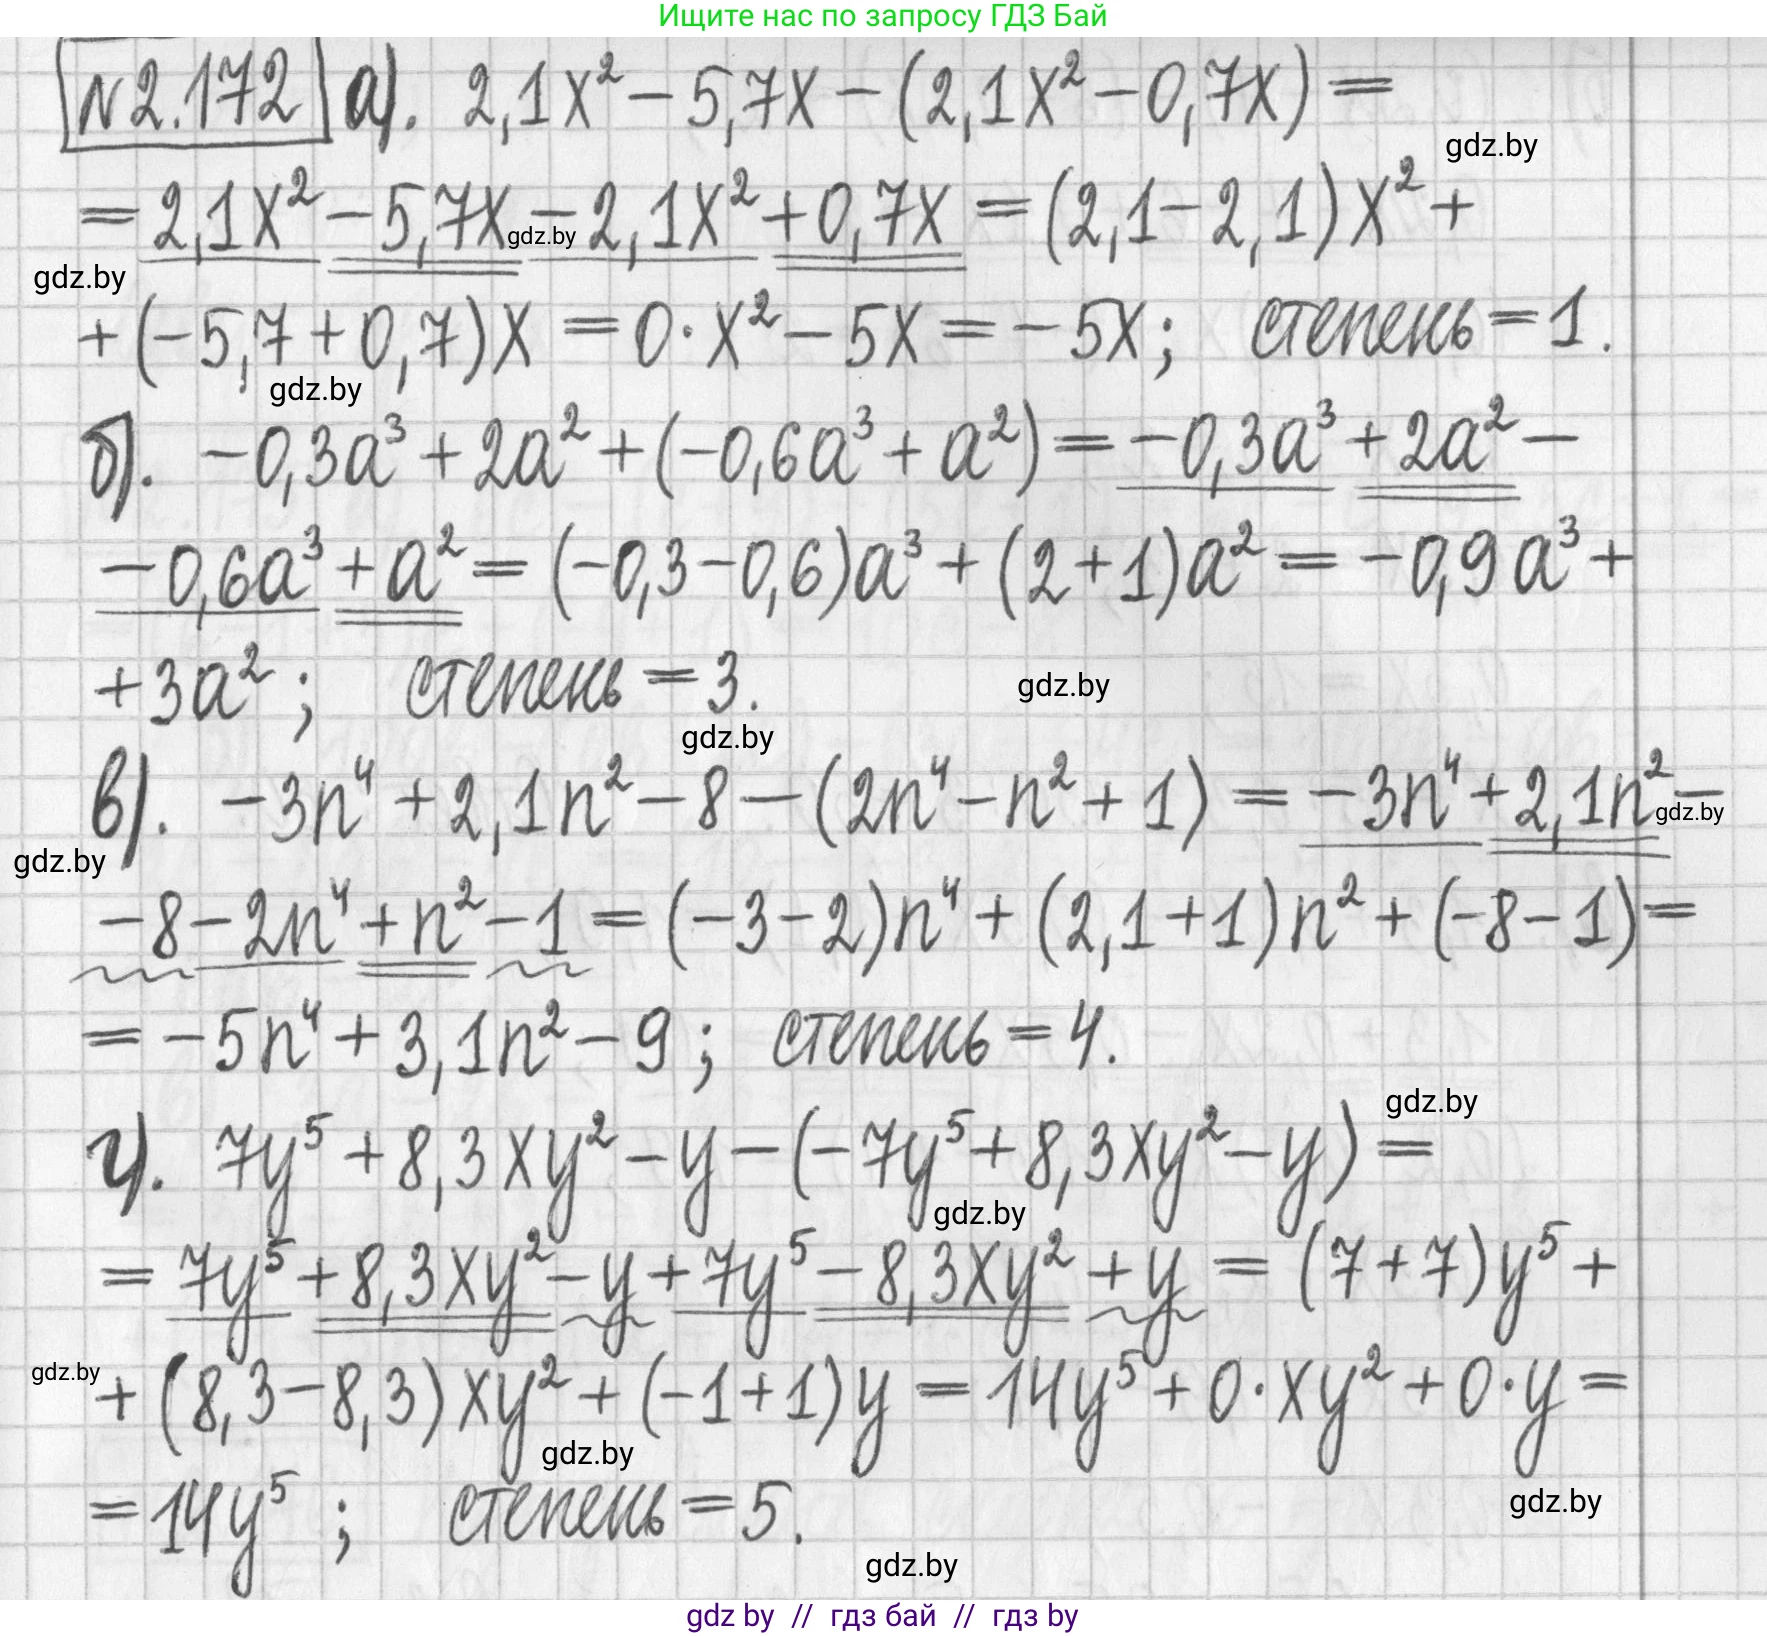 Ищите нас по запросу ГДЗ Бай
N2.172 а). 2,1x² − 5,7x − (2,1x² − 0,7x) =
gdz.by
= 2,1x² − 5,7x − 2,1x² + 0,7x = (2,1 − 2,1)x² +
gdz.by
gdz.by
+ (−5,7 + 0,7)x = 0·x² − 5x = −5x; степень = 1.
gdz.by
б). −0,3a³ + 2a² + (−0,6a³ + a²) = −0,3a³ + 2a² −
−0,6a³ + a² = (−0,3 − 0,6)a³ + (2 + 1)a² = −0,9a³ +
+ 3a²; степень = 3.
gdz.by
gdz.by
в). −3n⁴ + 2,1n² − 8 − (2n⁴ − n² + 1) = −3n⁴ + 2,1n² −
gdz.by
gdz.by
−8 − 2n⁴ + n² − 1 = (−3 − 2)n⁴ + (2,1 + 1)n² + (−8 − 1) =
= −5n⁴ + 3,1n² − 9; степень = 4.
gdz.by
г). 7y⁵ + 8,3xy² − y − (−7y⁵ + 8,3xy² − y) =
gdz.by
= 7y⁵ + 8,3xy² − y + 7y⁵ − 8,3xy² + y = (7 + 7)y⁵ +
gdz.by
+ (8,3 − 8,3)xy² + (−1 + 1)y = 14y⁵ + 0·xy² + 0·y =
gdz.by
= 14y⁵; степень = 5.
gdz.by
gdz.by
gdz by // гдз бай // гдз by